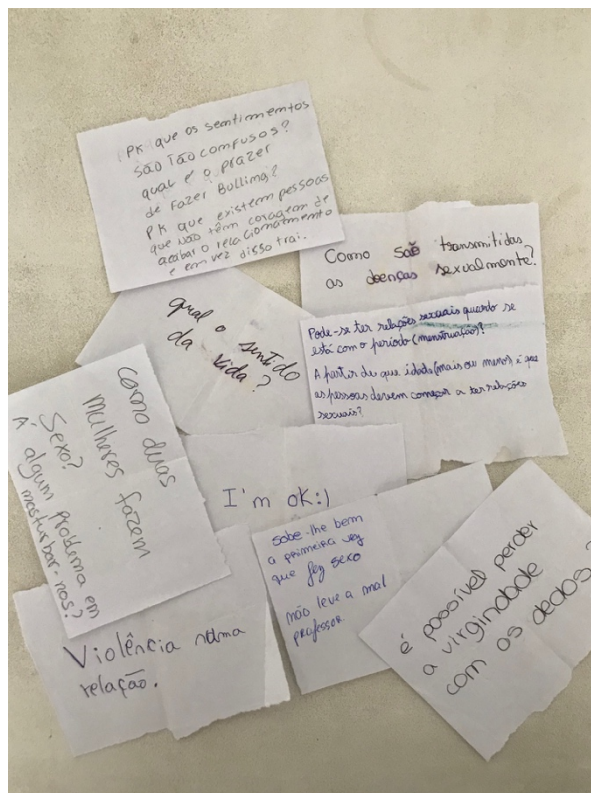 PK que os sentimentos
são Tão comfusos?
qual é o prazer
de fazer Bulling?
PK que existem pessoas
que não têm coragem de
acabar o relacionamento
e em vez disso trai.
Como são transmitidas
as doenças sexualmente?
qual o sentido
da vida?
Pode-se ter relações sexuais quando se
está com o período (menstruação)?
A partir de que idade (mais ou menos) é que
as pessoas devem começar a ter relações
sexuais?
como duas
mulheres fazem
Sexo?
Á algum problema em
masturbar-nos?
I'm ok:)
Sobe-lhe bem
a primeira vez
que fez sexo
não leve a mal
professor.
é possível perder
a virgindade
com os dedos?
Violência numa
relação.